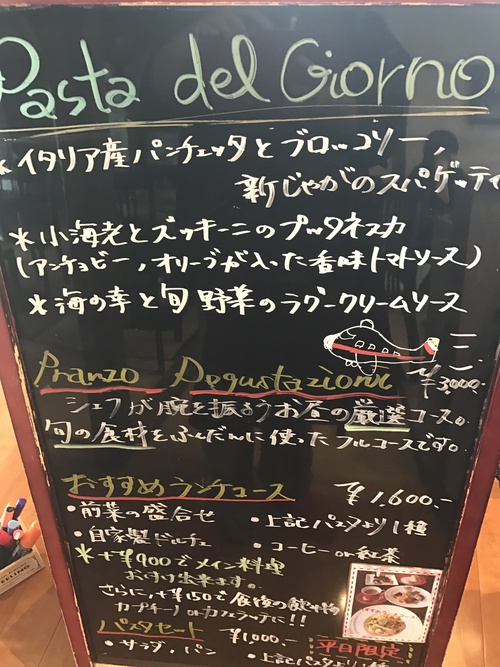 Pasta del Giorno
* イタリア産パンチェッタとブロッコリー、
新じゃがのスパゲッティ
* 小海老とズッキーニのプッタネスカ
(アンチョビー、オリーブが入った香味トマトソース)
* 海の幸と旬野菜のラグークリームソース
Pranzo Degustazione
¥3,000-
シェフが腕を振るうお昼の厳選コース。
旬の食材をふんだんに使ったフルコースです。
おすすめランチコース ¥1,600.-
・前菜の盛合せ ・上記パスタより1種
・自家製ドルチェ ・コーヒー or 紅茶
* +¥900でメイン料理
お付け出来ます。
さらに、+¥150で食後の飲み物
カプチーノ or カフェラッテに!!
パスタセット ¥1,000.- 平日限定
・サラダ、パン ・上記パスタより1種